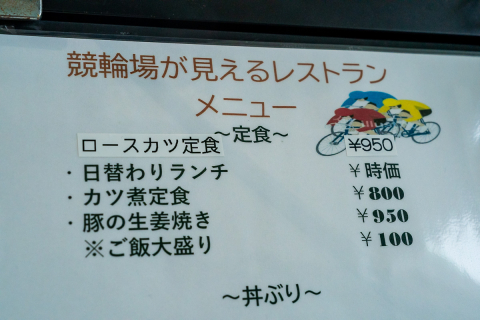 競輪場が見えるレストラン
メニュー
～定食～
ロースカツ定食 ¥950
・日替わりランチ ¥時価
・カツ煮定食 ¥800
・豚の生姜焼き ¥950
※ご飯大盛り ¥100
～丼ぶり～